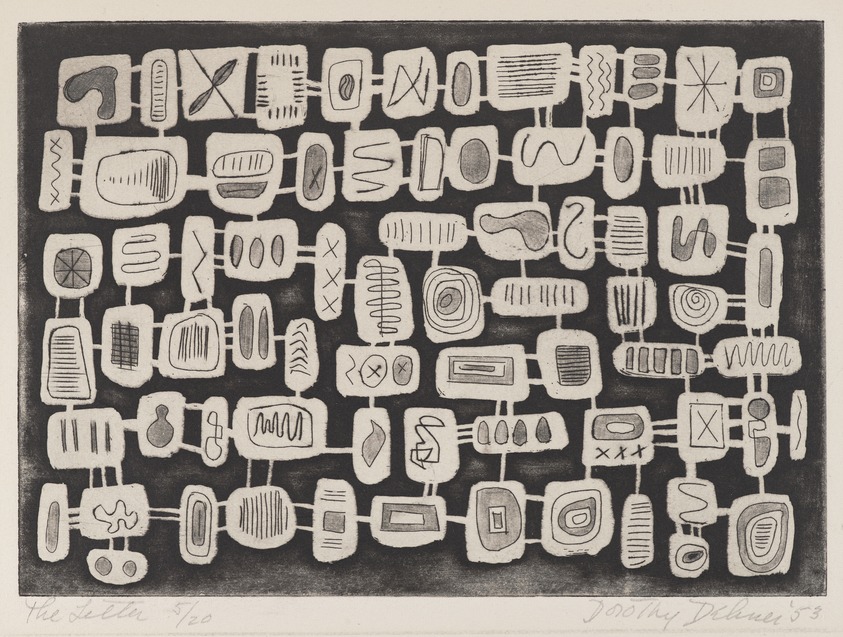 The Letter 5/20 Dorothy Dehner '53